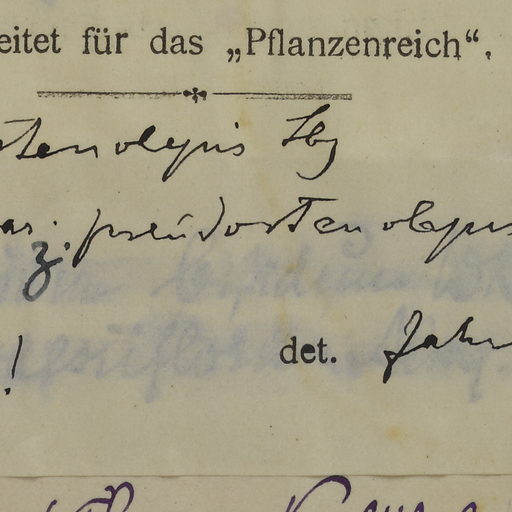 eitet für das „Pflanzenreich“.
stenolepis Lbg
ar. z. pseudostenolepis
! det. Jahn